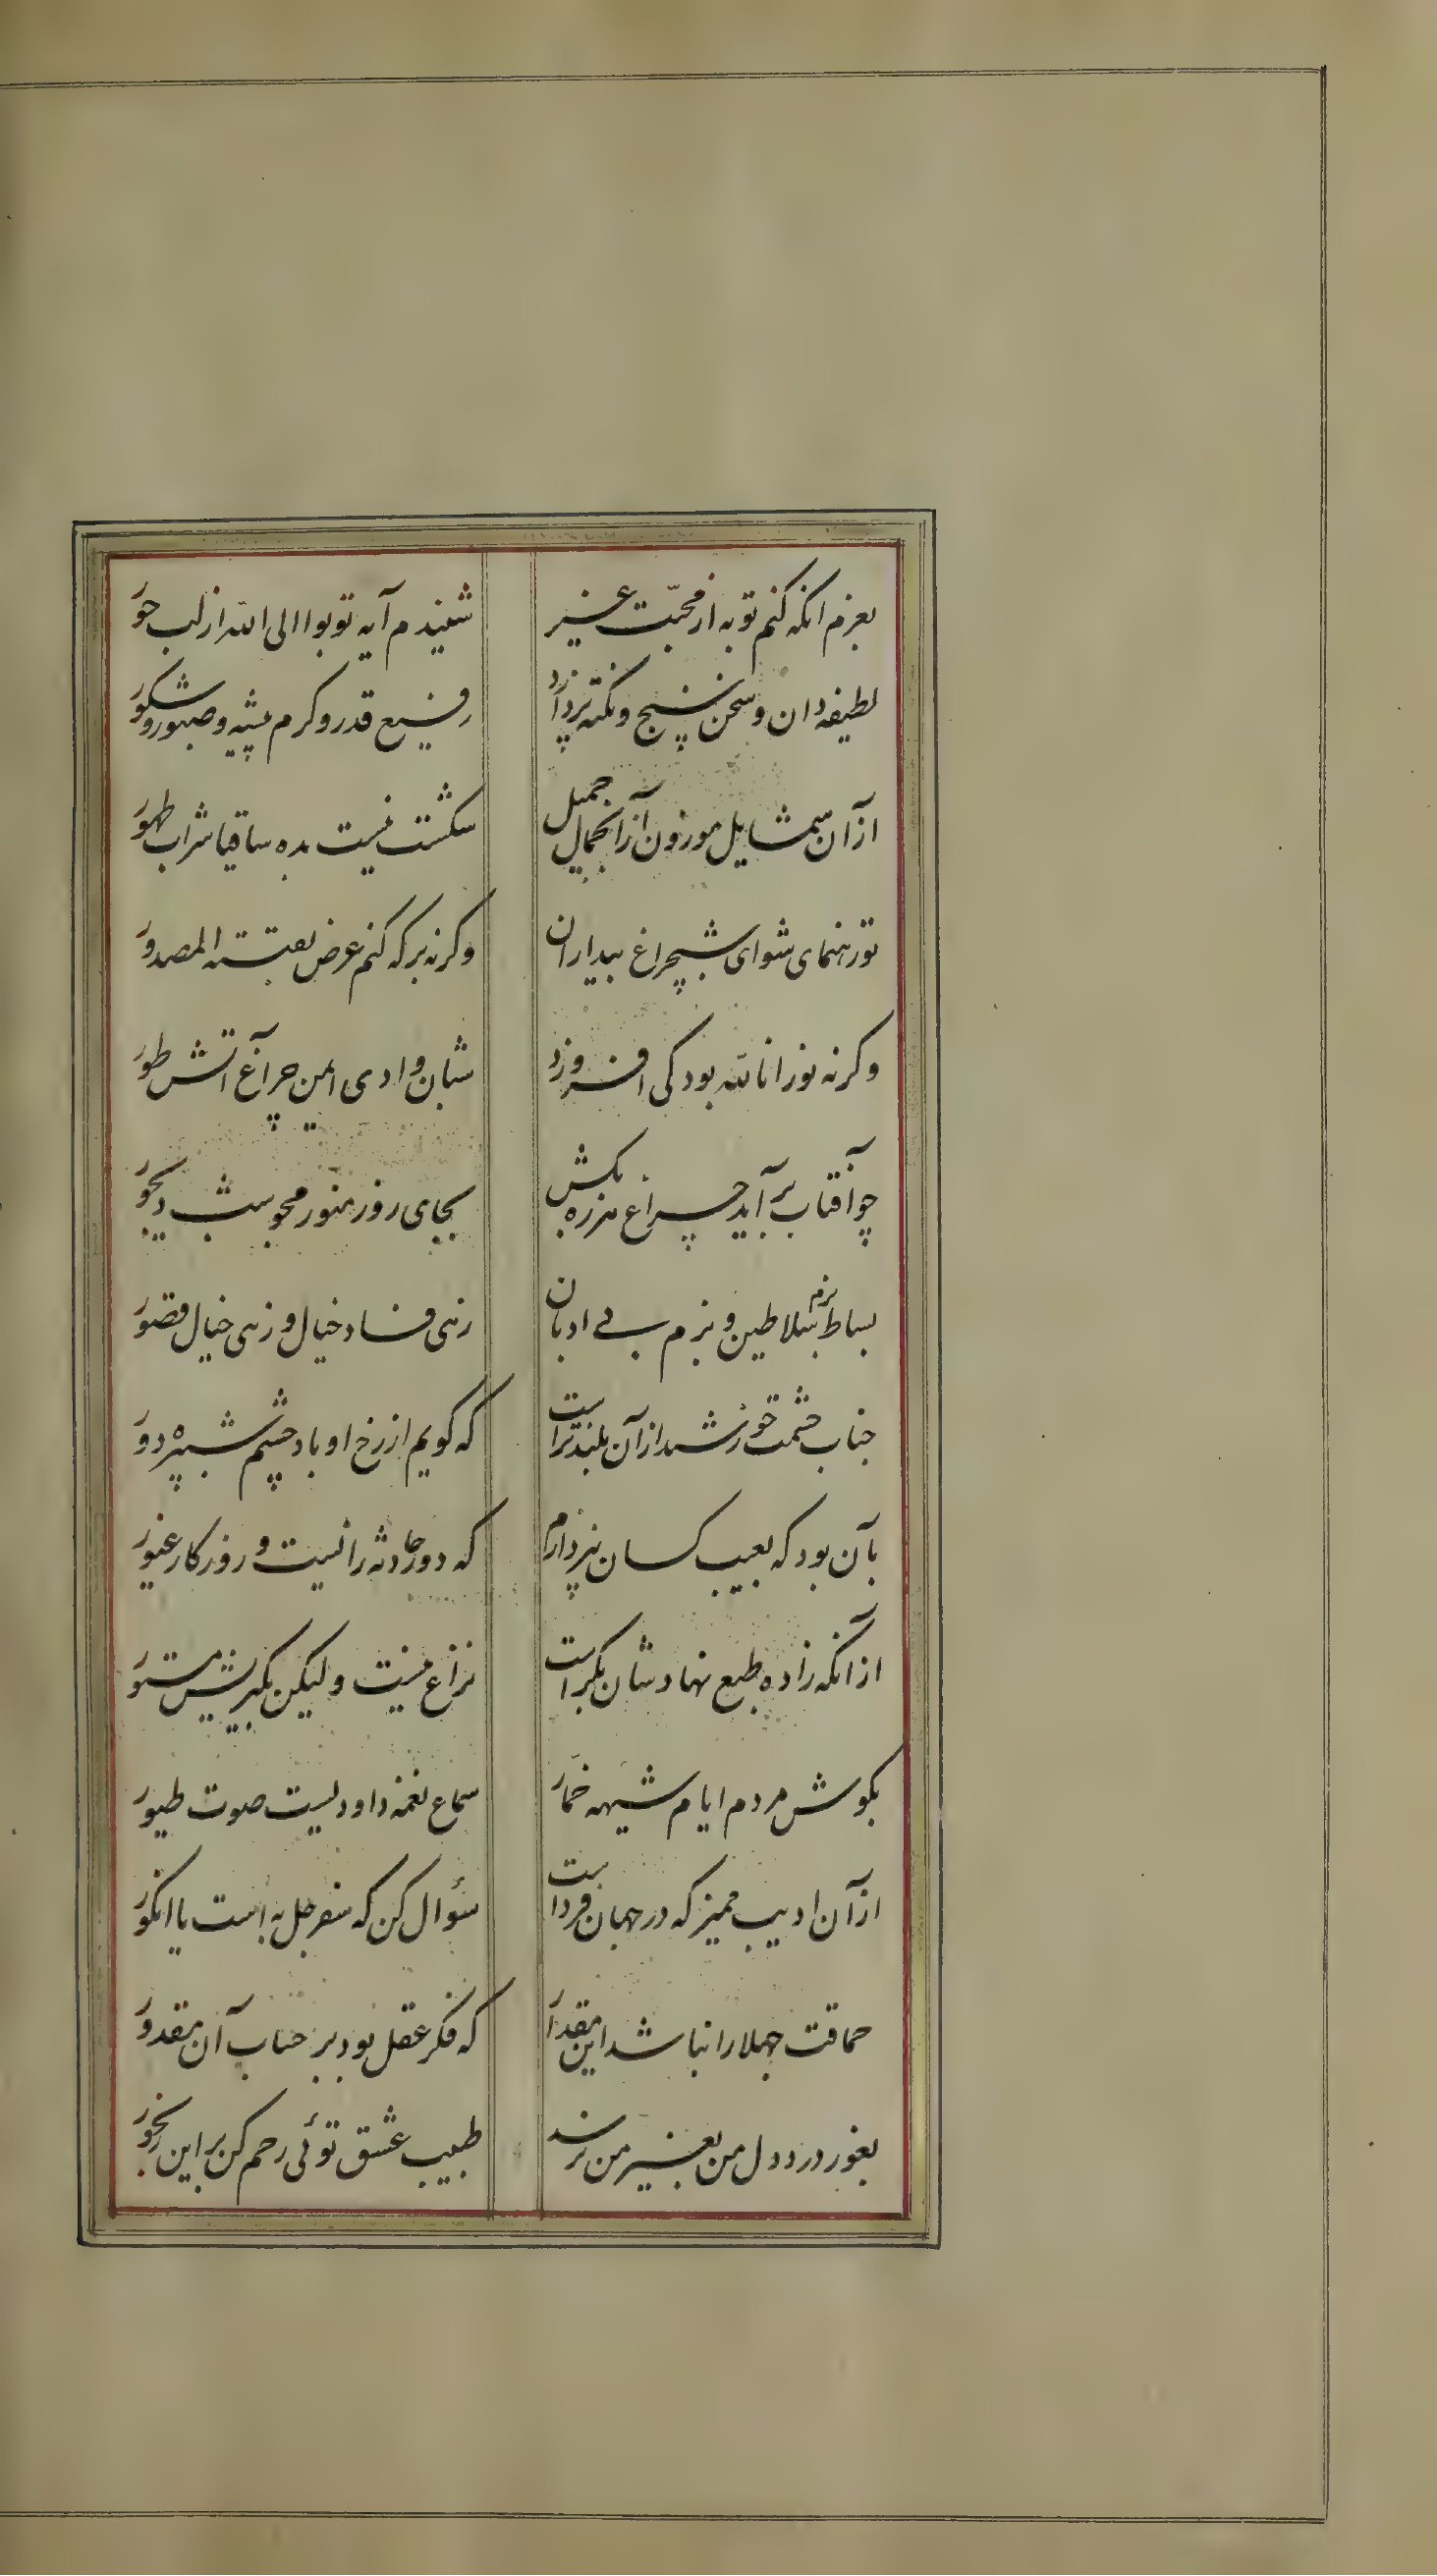 بعزم انکه کنم توبه از محبّت غیر
شنیدم آیه توبوا الی الله از لب حور
لطیفه دان و سخن سنج و نکته پرداز
رفیع قدر و کرم پیشه و صبور و شکور
ازان شمایل موزون ازان جمال جمیل
شکست نیست بده ساقیا شراب طهور
تو رهنمای شو ای شبچراغ بیداران
وگرنه برکه کنم عرض نفثته المصدور
وگرنه نور انا لله بود کی افروزد
شبان وادی ایمن چراغ آتش طور
چو آفتاب برآید چراغ هرزه مکش
بجای روز منور مجو شب دیجور
بساط بزم سلاطین و بزم بی ادبان
زهی فساد خیال و زهی خیال قصور
جناب حشمت خورشید ازان بلندتر است
که گویم از رخ او باد چشم شبپره دور
بآن بود که بعیب کسان نپردازم
که دور حادثه زانیست و روزگار غیور
ازانکه زاده طبع نهادشان بکر است
نزاع نیست ولیکن بکیر مستور
بگوش مردم ایام شیهه خمار
سماع نغمه داودیست صوت طیور
ازان ادیب ممیز که در جهان فرد است
سؤال کن که سفرجل به است یا انگور
حماقت جهلا را نباشد این مقدار
که فکر عقل بود بر جناب آن مقدور
بغور درد دل من بغیر من نرسد
طبیب عشق توئی رحم کن بر این رنجور